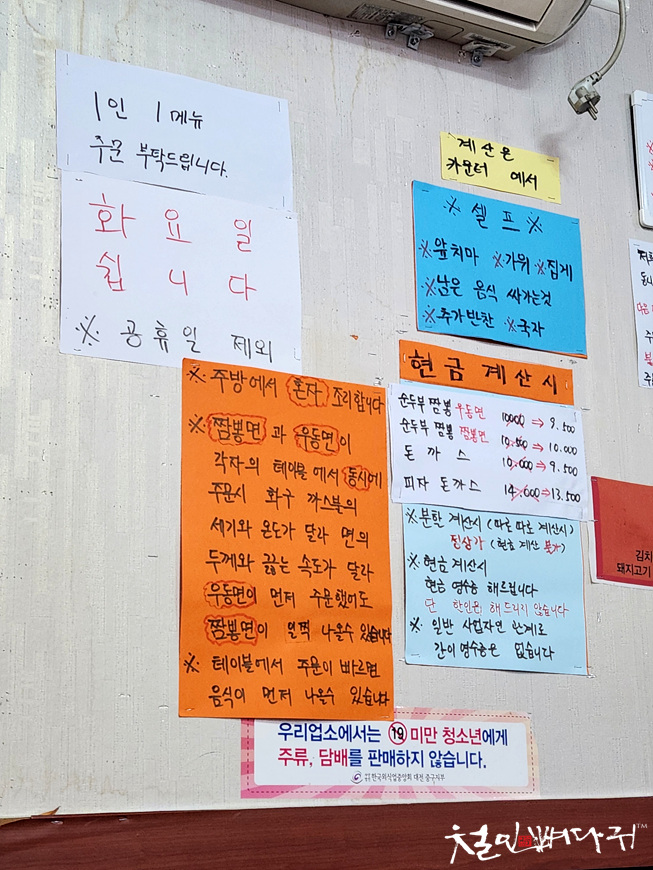 1인 1메뉴
주문 부탁드립니다.
화요일
쉽니다
※ 공휴일 제외
계산은
카운터 에서
※ 셀프 ※
※앞치마 ※가위 ※집게
※남은 음식 싸가는것
※추가반찬 ※국자
현금계산시
순두부 짬뽕 우동면 10000 ⇒ 9.500
순두부 짬뽕 짬뽕면 10.500 ⇒ 10.000
돈까스 10.000 ⇒ 9.500
피자 돈까스 14.000 ⇒ 13.500
※분할 계산시 (따로 따로 계산시)
정상가 (현금 계산 불가)
※현금 계산시
현금 영수증 해드립니다
단 할인은 해 드리지 않습니다
※ 일반 사업자인 관계로
간이 영수증은 없습니다
※ 주방에서 혼자 조리합니다
※ 짬뽕면 과 우동면이
각자의 테이블에서 동시에
주문시 화구 까스불의
세기와 온도가 달라 면의
두께와 끓는 속도가 달라
우동면이 먼저 주문했어도
짬뽕면이 일찍 나올수 있습니다
※ 테이블에서 주문이 빠르면
음식이 먼저 나올수 있습니다
우리업소에서는 19 미만 청소년에게
주류, 담배를 판매하지 않습니다.
한국외식업중앙회 대전 중구지부
김치
돼지고기
철인뼈다귀™